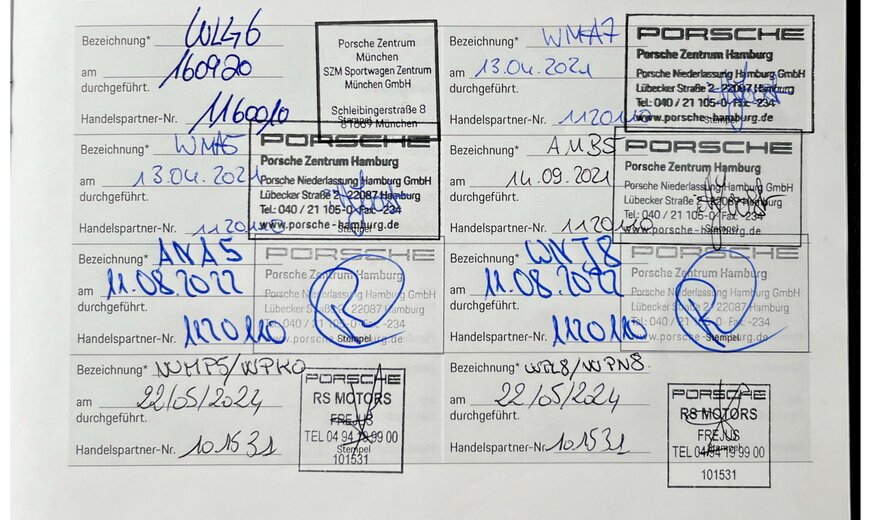 Bezeichnung* WLG6
am 160920
durchgeführt.
Handelspartner-Nr. 1160010
Porsche Zentrum
München
SZM Sportwagen Zentrum
München GmbH
Schleibingerstraße 8
81669 München
Stempel
Bezeichnung* WMA7
am 13.04.2021
durchgeführt.
Handelspartner-Nr. 1120110
PORSCHE
Porsche Zentrum Hamburg
Porsche Niederlassung Hamburg GmbH
Lübecker Straße 2 · 22087 Hamburg
Tel.: 040 / 21 105-0 · Fax: -234
www.porsche-hamburg.de
Stempel
Bezeichnung* WMA5
am 13.04.2021
durchgeführt.
Handelspartner-Nr. 1120110
PORSCHE
Porsche Zentrum Hamburg
Porsche Niederlassung Hamburg GmbH
Lübecker Straße 2 · 22087 Hamburg
Tel.: 040 / 21 105-0 · Fax: -234
www.porsche-hamburg.de
Stempel
Bezeichnung* AMB5
am 14.09.2021
durchgeführt.
Handelspartner-Nr. 1120110
PORSCHE
Porsche Zentrum Hamburg
Porsche Niederlassung Hamburg GmbH
Lübecker Straße 2 · 22087 Hamburg
Tel.: 040 / 21 105-0 · Fax: -234
www.porsche-hamburg.de
Stempel
Bezeichnung* ANA5
am 11.08.2022
durchgeführt.
Handelspartner-Nr. 1120110
PORSCHE
Porsche Zentrum Hamburg
Porsche Niederlassung Hamburg GmbH
Lübecker Straße 2 · 22087 Hamburg
Tel.: 040 / 21 105-0 · Fax: -234
www.porsche-hamburg.de
Stempel
Bezeichnung* WNJ8
am 11.08.2022
durchgeführt.
Handelspartner-Nr. 1120110
PORSCHE
Porsche Zentrum Hamburg
Porsche Niederlassung Hamburg GmbH
Lübecker Straße 2 · 22087 Hamburg
Tel.: 040 / 21 105-0 · Fax: -234
www.porsche-hamburg.de
Stempel
Bezeichnung* WMP5/WPK0
am 22/05/2024
durchgeführt.
Handelspartner-Nr. 101531
PORSCHE
RS MOTORS
FREJUS
TEL 04 94 19 99 00
Stempel
101531
Bezeichnung* WPL8/WPN8
am 22/05/2024
durchgeführt.
Handelspartner-Nr. 101531
PORSCHE
RS MOTORS
FREJUS
Stempel
TEL 04 94 19 99 00
101531